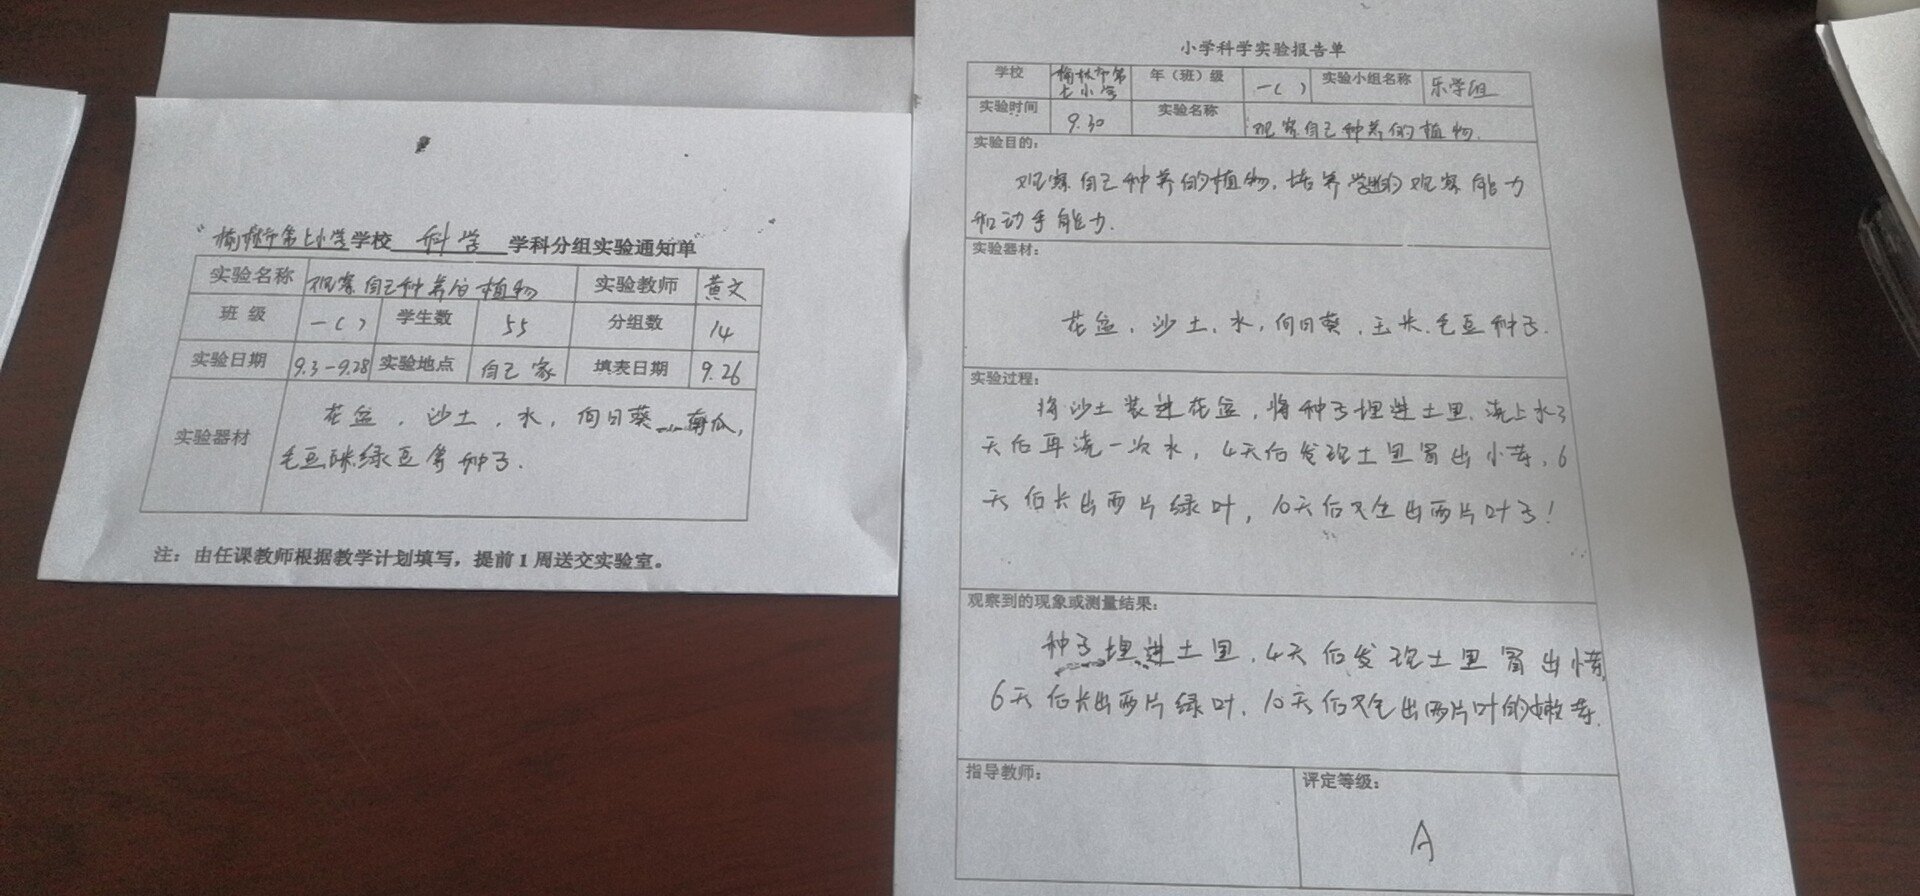 榆林市第七小学学校 科学 学科分组实验通知单
实验名称 观察自己种养的植物 实验教师 黄文
班级 一( ) 学生数 55 分组数 14
实验日期 9.3-9.28 实验地点 自己家 填表日期 9.26
实验器材
花盆，沙土，水，向日葵 南瓜，
毛豆 绿豆等种子.
注：由任课教师根据教学计划填写，提前1周送交实验室。
小学科学实验报告单
学校 榆林市第七小学 年（班）级 一( ) 实验小组名称 乐学组
实验时间 9.30 实验名称 观察自己种养的植物.
实验目的：
观察自己种养的植物，培养学生的观察能力
和动手能力.
实验器材：
花盆，沙土，水，向日葵，玉米，毛豆种子.
实验过程：
将沙土装进花盆，将种子埋进土里，浇上水3
天后再浇一次水，4天后发现土里冒出小芽，6
天后长出两片绿叶，10天后又生出两片叶子！
观察到的现象或测量结果：
种子埋进土里，4天后发现土里冒出小芽，
6天后长出两片绿叶，10天后又生出两片叶的嫩芽.
指导教师： 评定等级：
A